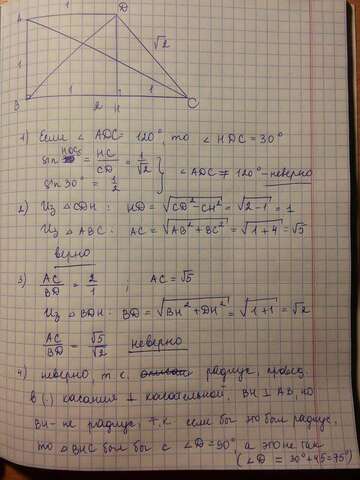 A 1 D
√2
1
B 2 H 1 C
1) Если ∠ ADC = 120°, то ∠ HDC = 30°
sin HDC = HC/CD = 1/√2
sin 30° = 1/2 } ∠ ADC ≠ 120° - неверно
2) Из △CDH : HD = √(CD² - CH²) = √(2-1) = 1
Из △ABC : AC = √(AB² + BC²) = √(1+4) = √5
верно
3) AC/BD = 2/1 ; AC = √5
Из △BDH : BD = √(BH² + DH²) = √(1+1) = √2
AC/BD = √5/√2 неверно
4) неверно, т.к. радиус, провед.
в (·) касания ⊥ касательной, BH ⊥ AB, но
BH - не радиус, т.к. если бы это был радиус,
то △BHC был бы с ∠D = 90°, а это не так
(∠D = 30° + 45 = 75°)